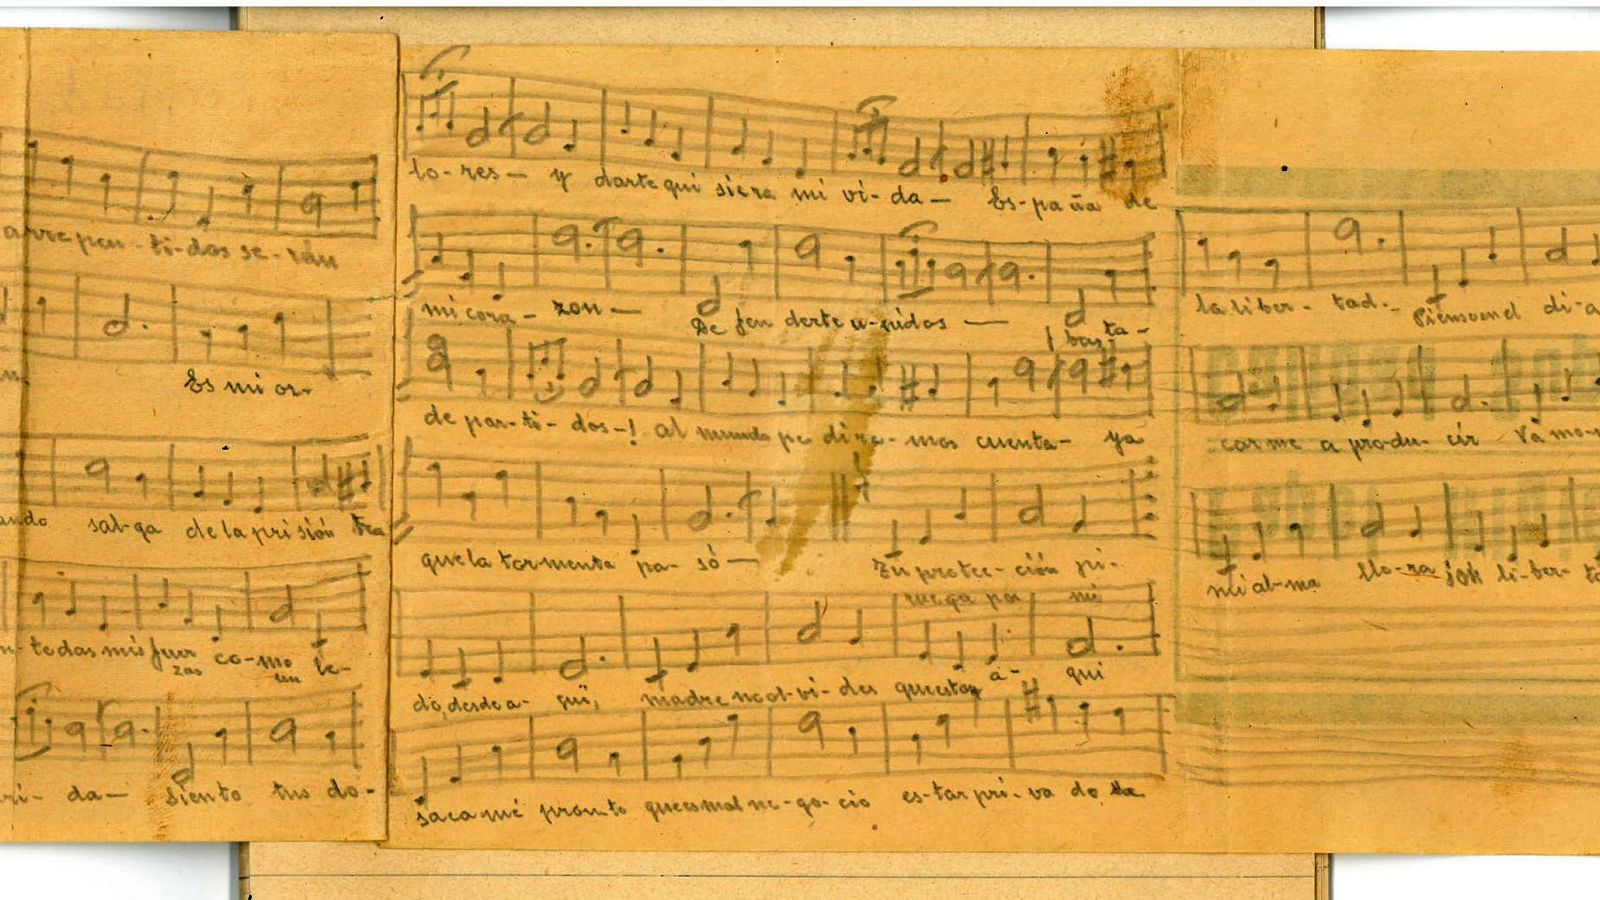 arrepen-ti-dos se-rán
Es mi or-
ando sal-ga de la pri sión
to das mis fuer zas co-mo un le-
ri- da- Siento tus do-
lo-res- y darte qui siera mi vi-da- Es-paña de
mi cora-zon- De fen derte u-nidos-
¡basta-
de par-ti-dos-! al mundo pe di re-mos cuenta- ya
que la tormenta pa-só- Tu protec-ción pi-
ruega por mi
do, desde a-quí, madre no ol-vi-des que estoy a-qui
sacamé pronto que es mal ne-go-cio es-tar pri-va do de
la li ber-tad.- Pienso en el di-a
carme a produ-cir
mi al-ma llo-ra ¡oh li-ber-